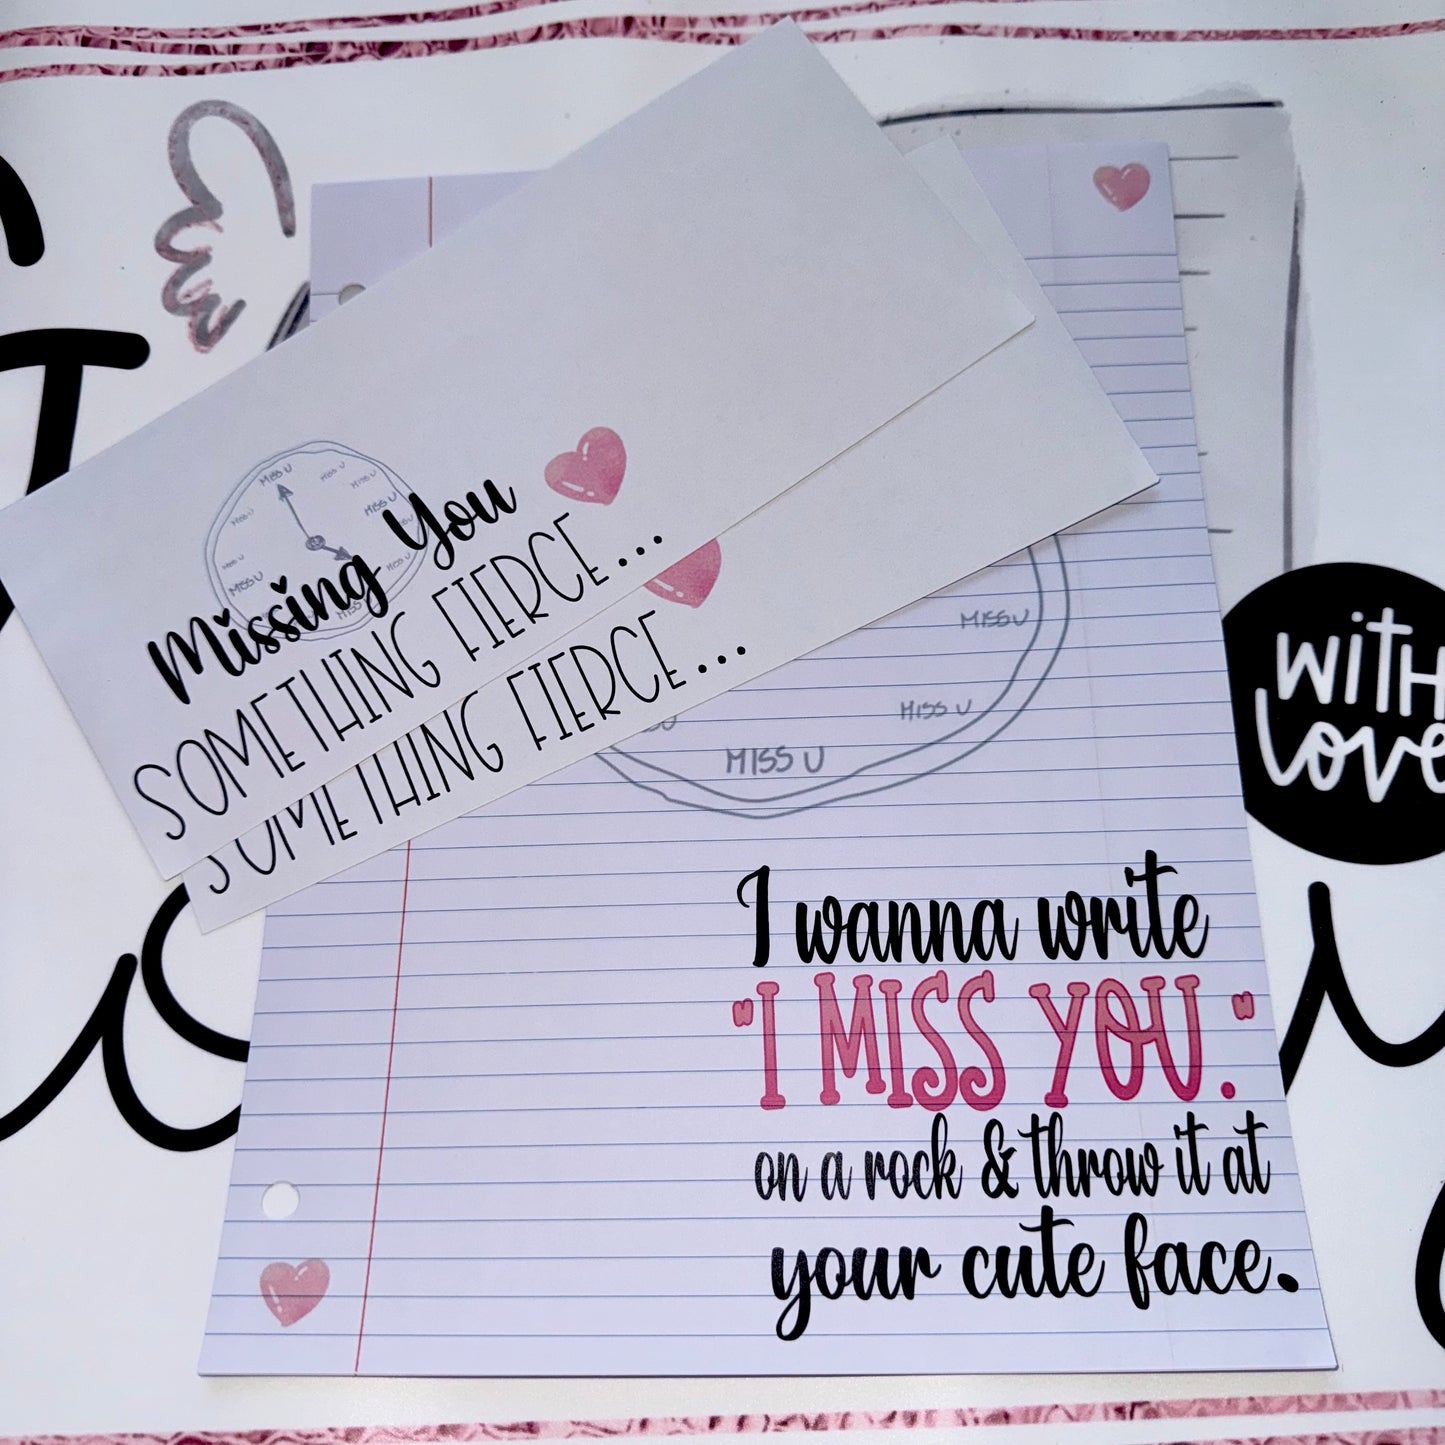 MISS U
MISS U
MISS U
MISS U
MISS U
MISS U
MISS U
MISS U
MISS U
Missing You
SOMETHING FIERCE...
SOMETHING FIERCE...
MISS U
MISS U
MISS U
WITH
Love
I wanna write
"I MISS YOU."
on a rock & throw it at
your cute face.